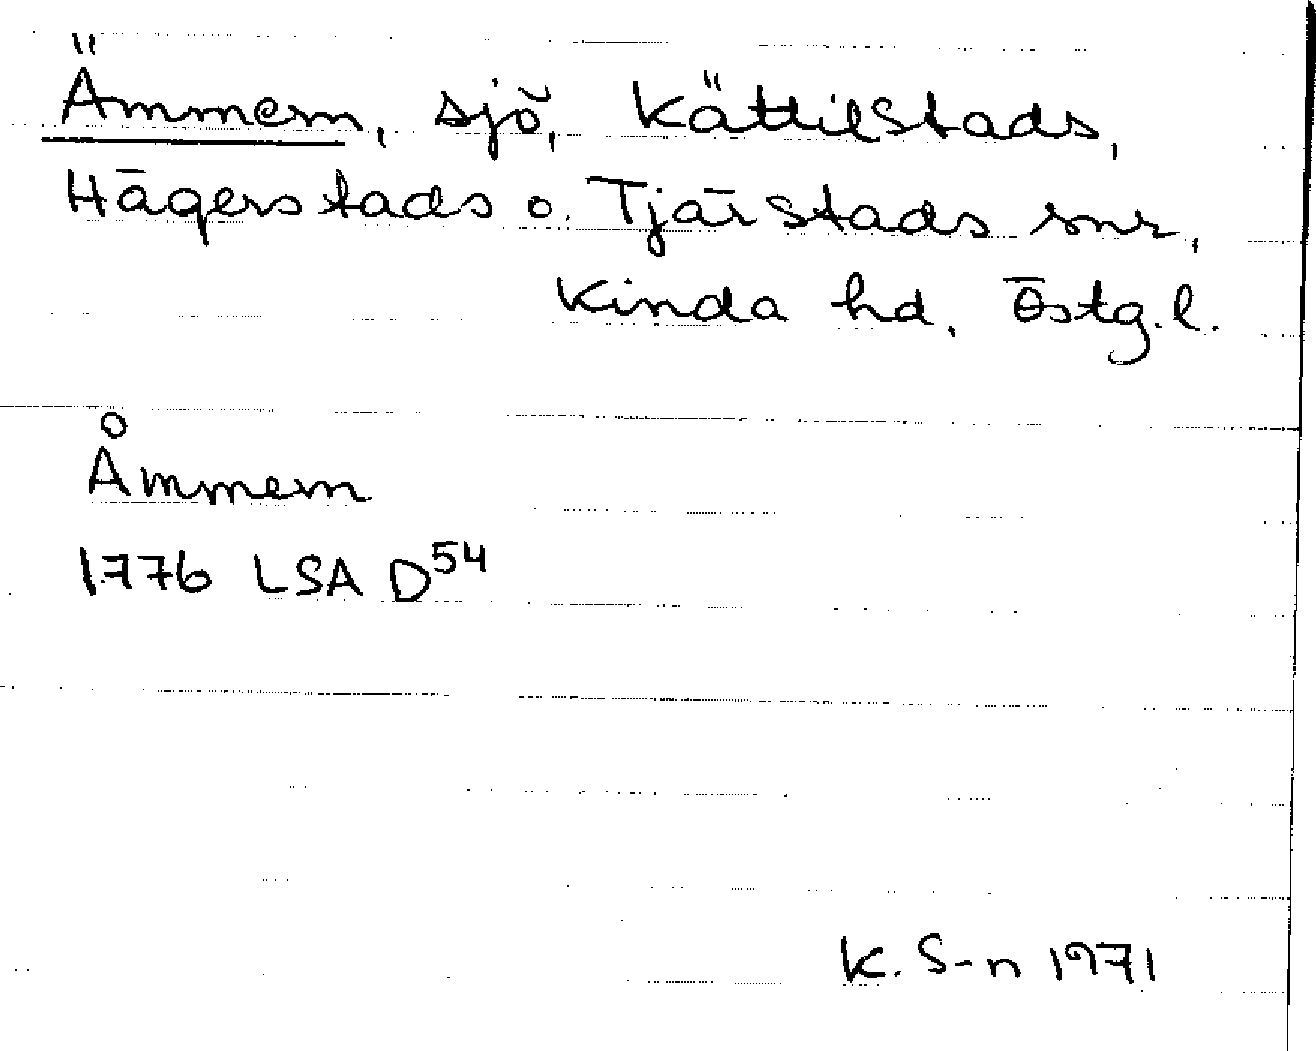 Ämmern, sjö, Kättilstads,
Hägerstads o. Tjärstads snr,
Kinda hd, Östg.l.
Åmmern
1776 LSA D54
K. S-n 1971